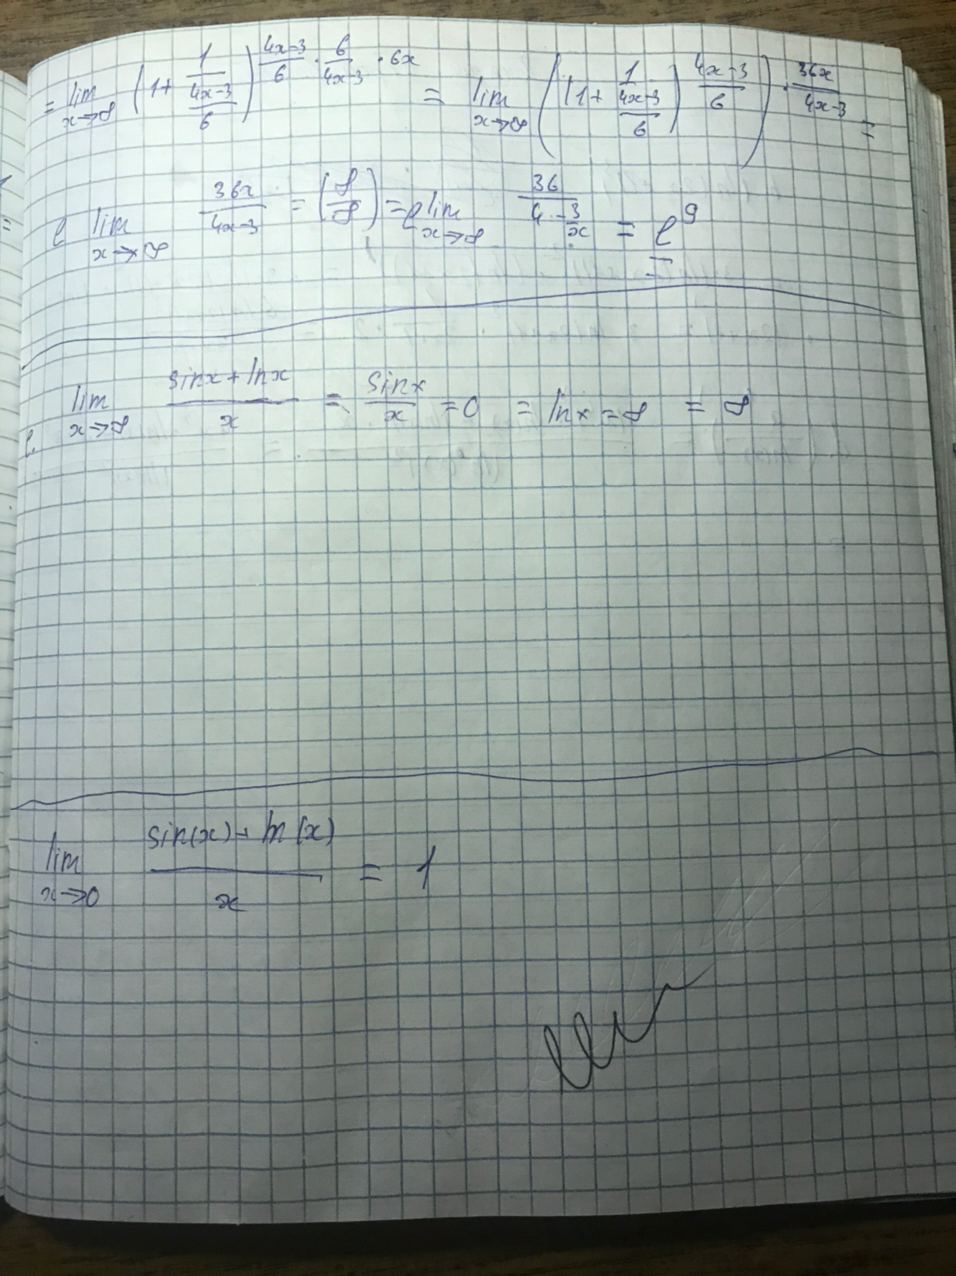 = lim x→∞ (1 + 1/((4x-3)/6))^((4x-3)/6 · 6/(4x-3) · 6x) = lim x→∞ ((1 + 1/((4x-3)/6))^((4x-3)/6))^(· 36x/(4x-3)) =
e lim x→∞ 36x/(4x-3) = (∞/∞) = e lim x→∞ 36/(4-3/x) = e^9
lim x→∞ (sinx + lnx)/x = sinx/x = 0 = lnx = ∞ = ∞
lim x→0 (sin(x) + ln(x))/x = 1